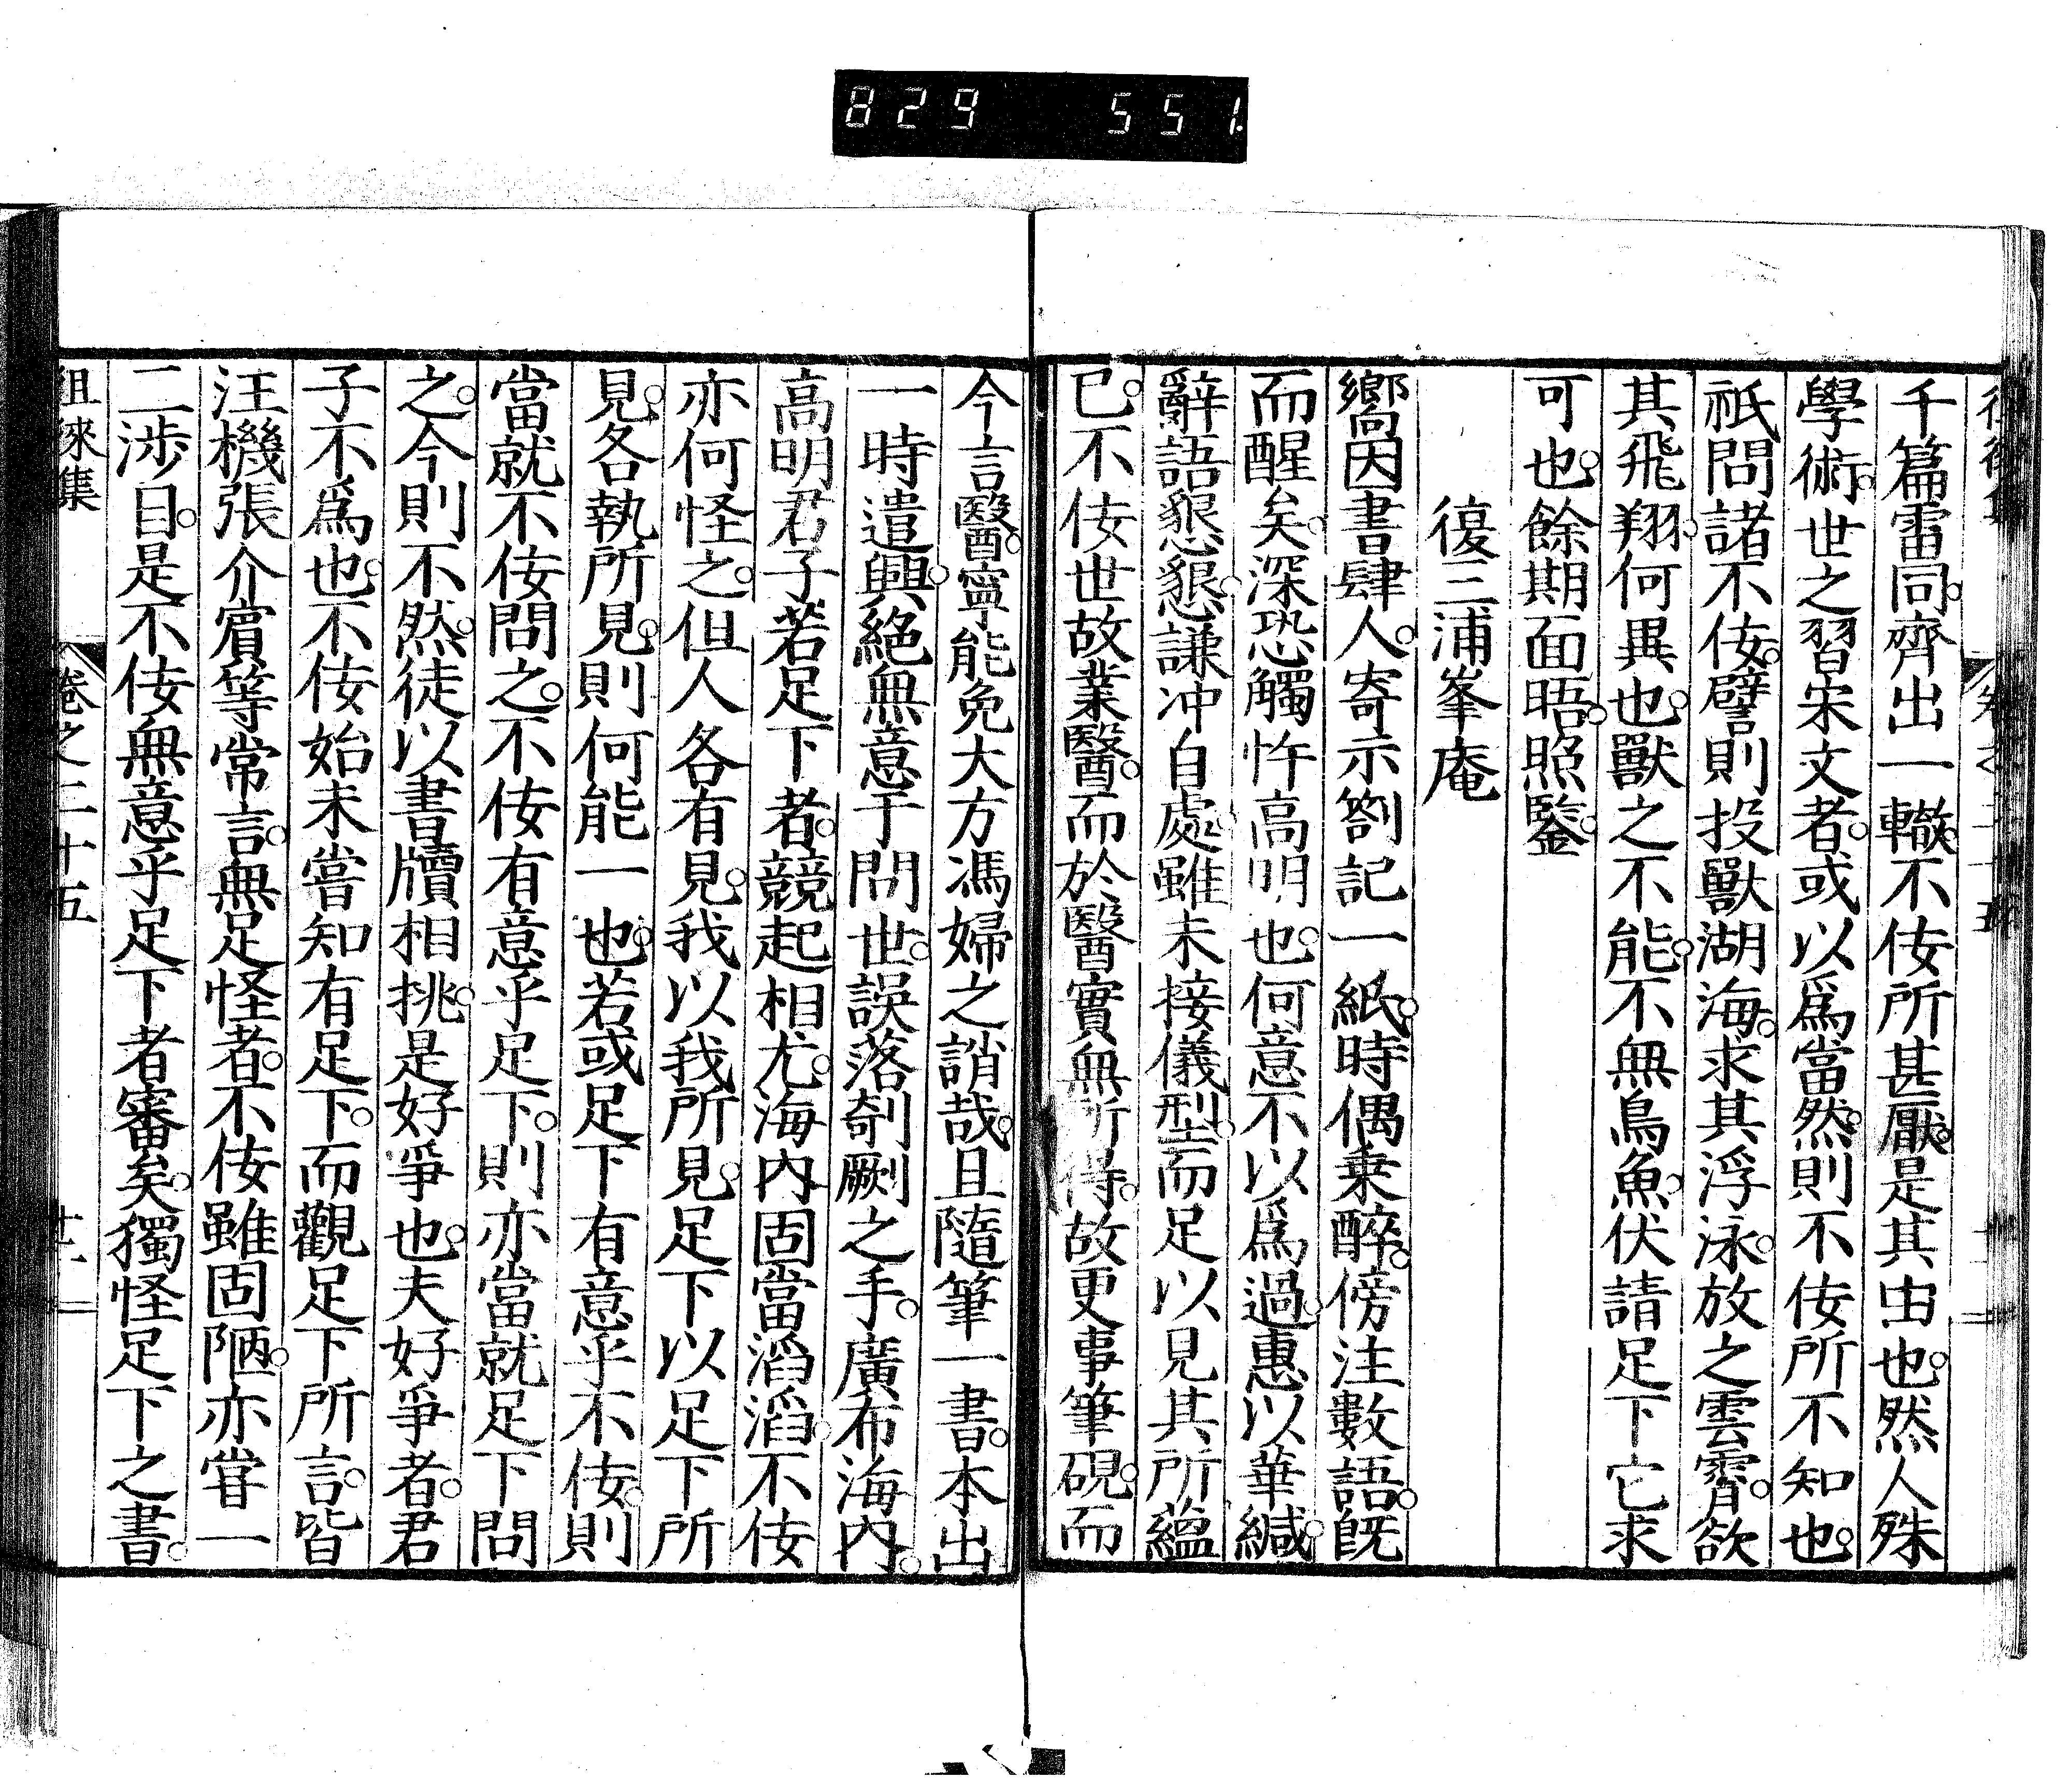 829 551
千篇雷同。齊出一轍。不侫所甚厭。是其由也。然人殊
學術。世之習宋文者。或以爲當然。則不侫所不知也。
祇問諸不侫。譬則投獸湖海。求其浮泳。放之雲霄。欲
其飛翔。何異也。獸之不能。不無鳥魚。伏請足下它求
可也。餘期面晤。照鑒。
復三浦峯庵
嚮因書肆人。寄示劄記一紙。時偶乗醉。傍注數語。既
而醒矣。深恐觸忤高明也。何意不以爲過。惠以華緘。
辭語懇懇。謙冲自處。雖未接儀型。而足以見其所蘊
已。不侫世故業醫。而於醫實無所得。故更事筆硯。而
今言醫。寧能免大方馮婦之誚哉。且隨筆一書。本出
一時遣興。絶無意于問世。誤落剞劂之手。廣布海内。
高明君子若足下者。競起相尤。海内固當滔滔。不侫
亦何怪之。但人各有見。我以我所見。足下以足下所
見。各執所見。則何能一也。若或足下有意乎不侫。則
當就不侫問之。不侫有意乎足下。則亦當就足下問
之。今則不然。徒以書牘相挑。是好爭也。夫好爭者。君
子不爲也。不侫始未嘗知有足下。而觀足下所言。皆
汪機張介賓等常言。無足怪者。不侫雖固陋。亦甞一
二渉目。是不侫無意乎足下者審矣。獨怪足下之書。
徂徠集 卷之二十五